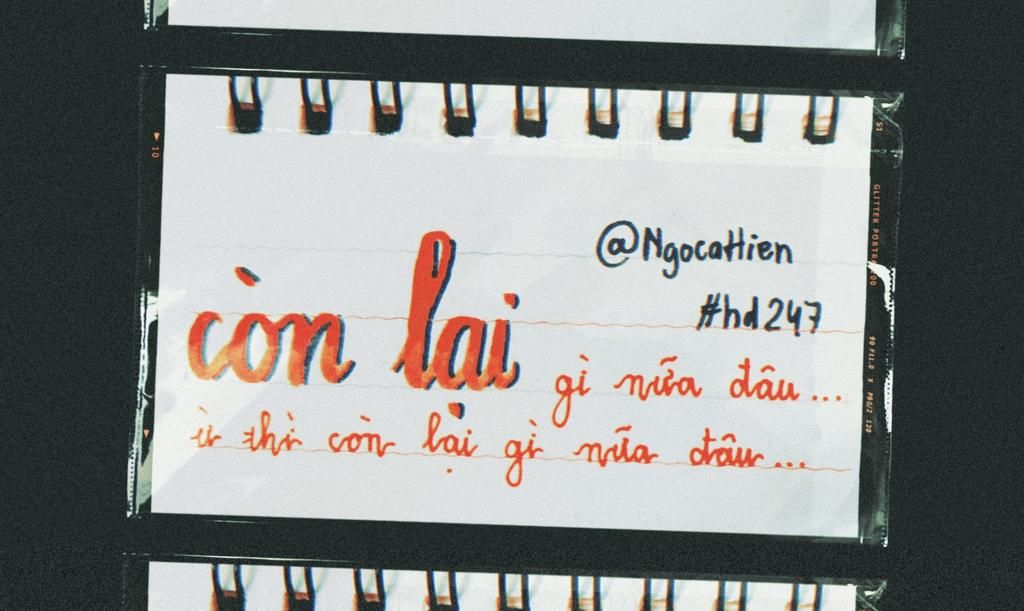 @NgocaHien
#hd247
còn lại gì nữa đâu...
ừ thì còn lại gì nữa đâu...
10
GLITTER PORTRA